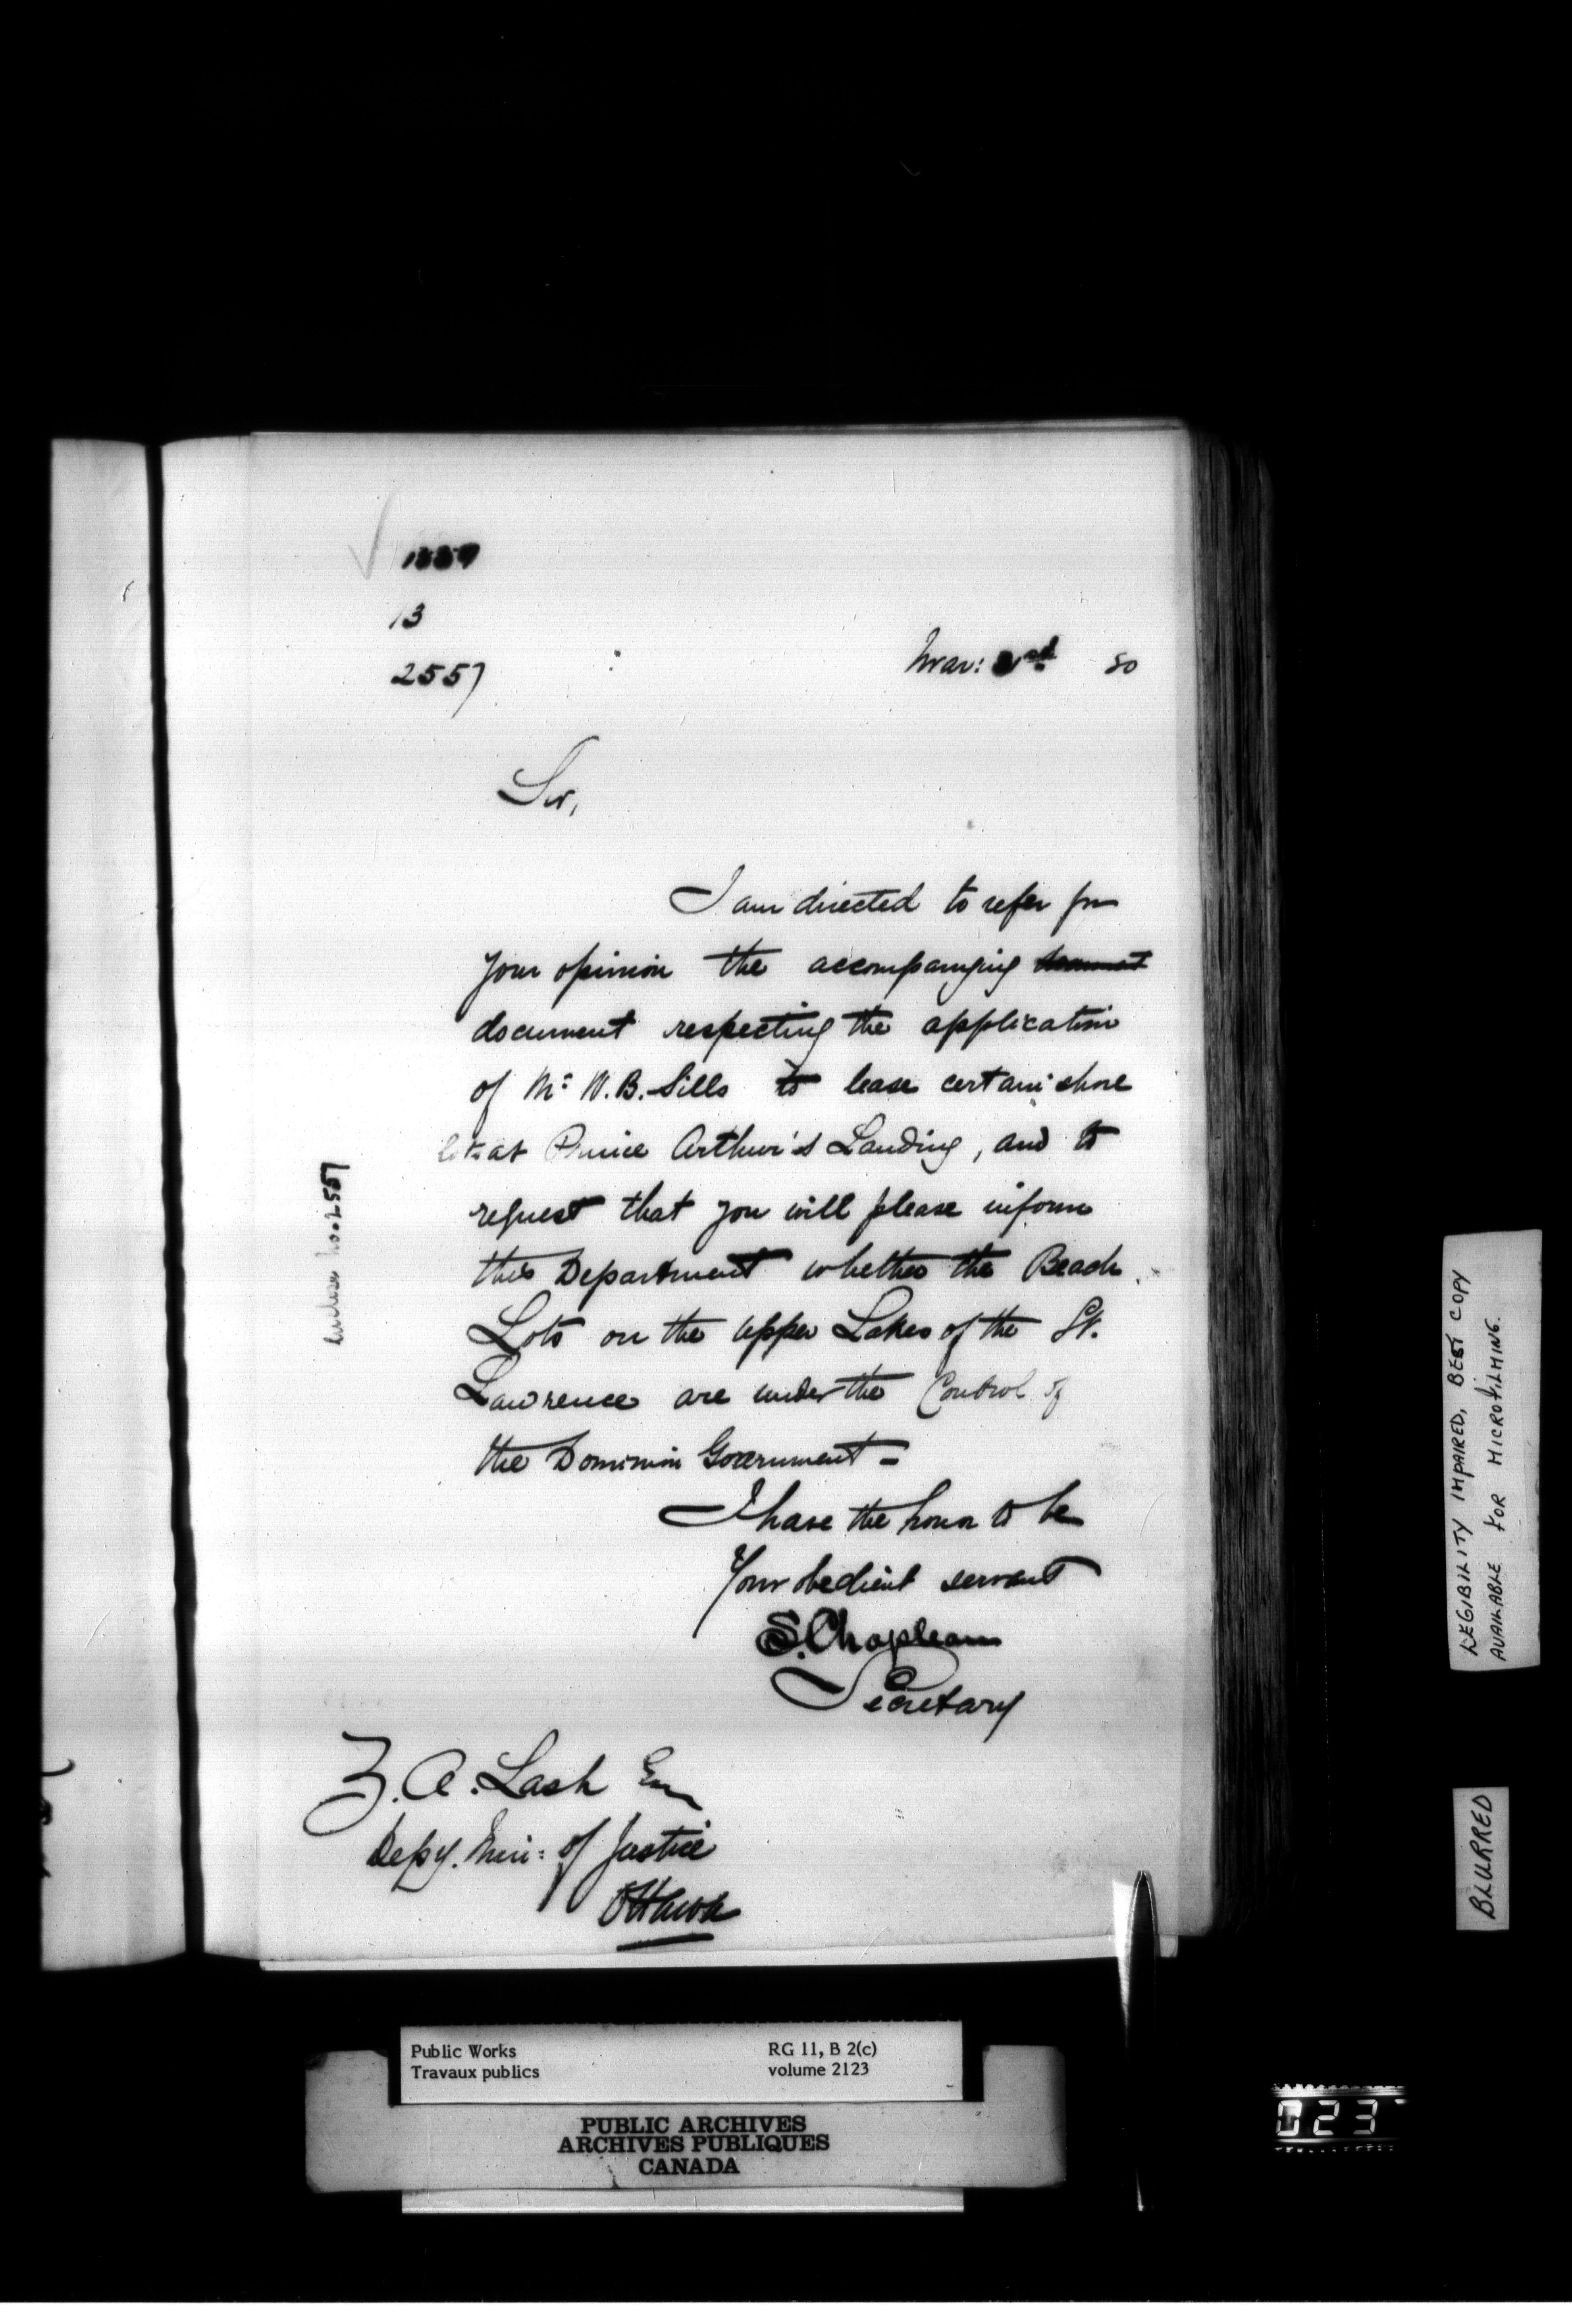 13
2557
Mar: 80
Sir,
I am directed to refer for
your opinion the accompanying
document respecting the application
of Mr W. B. Sills to lease certain shore
lots at Prince Arthur's Landing, and to
request that you will please inform
this Department whether the Beach
Lots on the upper Lakes of the St.
Lawrence are under the Control of
the Dominion Government =
I have the honor to be
Your obedient servant
S. Chapleau
Secretary
Z. A. Lash Esq
Depy. Min: of Justice
Ottawa
Enclose No 2557
LEGIBILITY IMPAIRED, BEST COPY
AVAILABLE FOR MICROFILMING.
BLURRED
Public Works RG 11, B 2(c)
Travaux publics volume 2123
PUBLIC ARCHIVES
ARCHIVES PUBLIQUES
CANADA
023